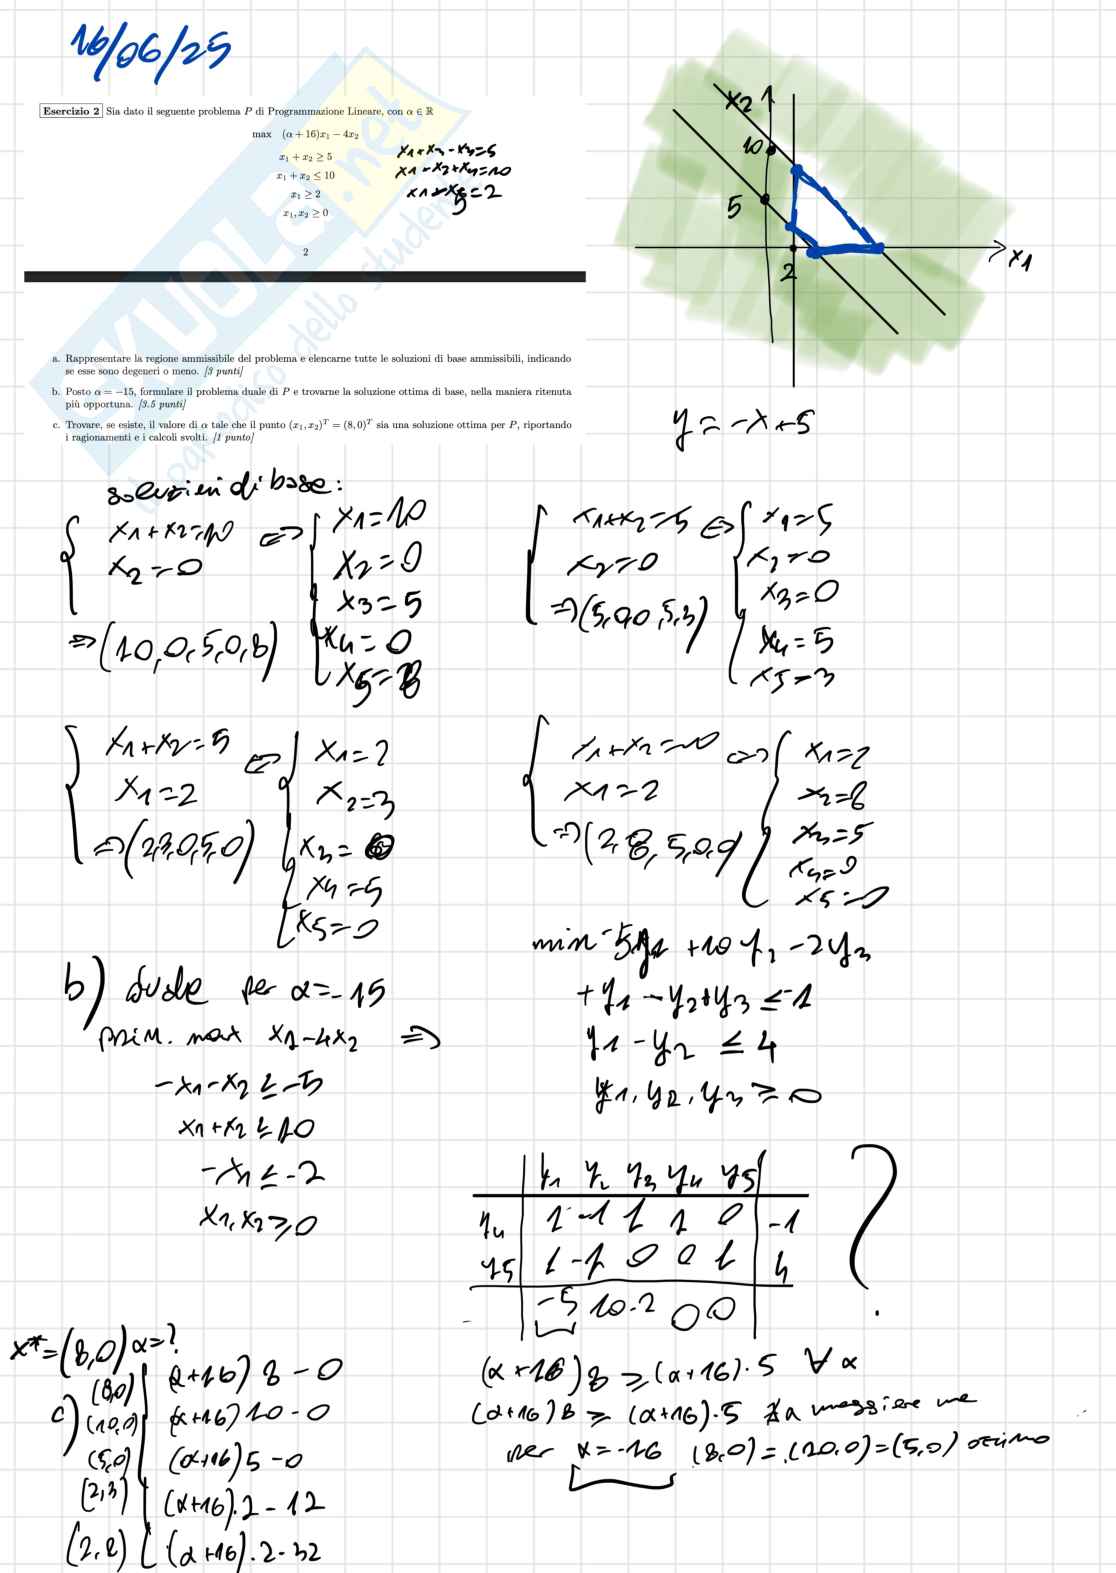 16/06/25
Esercizio 2 Sia dato il seguente problema P di Programmazione Lineare, con α ∈ ℝ
max (α + 16)x₁ − 4x₂
x₁ + x₂ ≥ 5
x₁ + x₂ ≤ 10
x₁ ≥ 2
x₁, x₂ ≥ 0
2
x₁+x₂-x₃=5
x₁-x₂+x₄=10
x₁-x₅=2
x₂
10
5
2
x₁
y=-x+5
a. Rappresentare la regione ammissibile del problema e elencarne tutte le soluzioni di base ammissibili, indicando
se esse sono degeneri o meno. [3 punti]
b. Posto α = −15, formulare il problema duale di P e trovarne la soluzione ottima di base, nella maniera ritenuta
più opportuna. [3.5 punti]
c. Trovare, se esiste, il valore di α tale che il punto (x₁, x₂)ᵀ = (8, 0)ᵀ sia una soluzione ottima per P, riportando
i ragionamenti e i calcoli svolti. [1 punto]
SKUOLA.net
il paradiso dello studente
soluzioni di base:
x₁+x₂=10 <=> x₁=10
x₂=0 x₂=0
x₃=5
x₄=0
=>(10,0,5,0,8) x₅=8
x₁+x₂=5 <=> x₁=5
x₂=0 x₂=0
=>(5,0,0,5,3) x₃=0
x₄=5
x₅=3
x₁+x₂=5 <=> x₁=2
x₁=2 x₂=3
=>(2,3,0,5,0) x₃=0
x₄=5
x₅=0
x₁+x₂=10 <=> x₁=2
x₁=2 x₂=8
=>(2,8,5,0,0) x₃=5
x₄=0
x₅=0
b) duale per α=-15
prim. max x₁-4x₂ =>
-x₁-x₂≤-5
x₁+x₂≤10
-x₁≤-2
x₁,x₂≥0
min -5y₁ +10y₂ -2y₃
+y₁-y₂+y₃≤-1
y₁-y₂ ≤4
y₁,y₂,y₃≥0
y₁ y₂ y₃ y₄ y₅
y₄ 1 -1 1 1 0 -1
y₅ 1 -1 0 0 1 4
-5 10 -2 0 0
?
x*=(8,0) α=?
c)
(8,0) (α+16)8-0
(10,0) (α+16)10-0
(5,0) (α+16)5-0
(2,3) (α+16).2-12
(2,8) (α+16).2-32
(α+16)8≥(α+16).5 ∀α
(α+16)8≥(α+16).5 ∄α maggiore ma
per α=-16 (8,0)=(10,0)=(5,0) ottimo